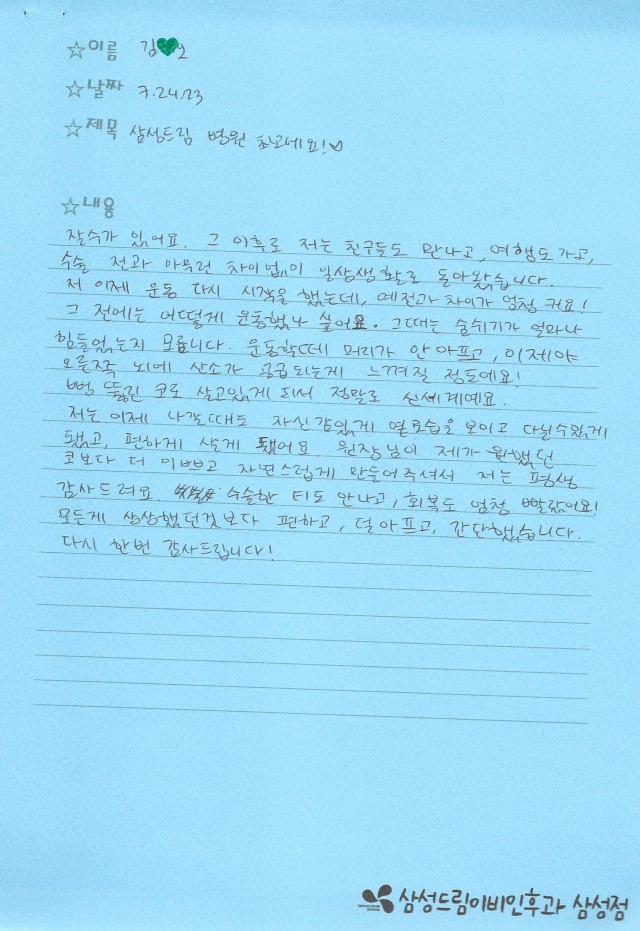 ☆이름 김💚오
☆날짜 7.24.23
☆제목 삼성드림 병원 최고예요!♡
☆내용
잘수가 있어요. 그 이후로 저는 친구들도 만나고, 여행도 가고,
수술 전과 아무런 차이 없이 일상생활로 돌아왔습니다.
저 이제 운동 다시 시작을 했는데, 예전과 차이가 엄청 커요!
그 전에는 어떻게 운동했나 싶어요. 그때는 숨쉬기가 얼마나
힘들었는지 모릅니다. 운동할때 머리가 안아프고, 이제야
오른쪽 뇌에 산소가 공급되는게 느껴질 정도예요!
뻥 뚫린 코로 살고있게 되서 정말로 신세계예요.
저는 이제 나갈때도 자신감있게 옆모습을 보이고 다닐수있게
됐고, 편하게 살게 됐어요. 원장님이 제가 원했던
코보다 더 이쁘고 자연스럽게 만들어주셔서 저는 평생
감사드려요. 수술한 티도 안나고, 회복도 엄청 빨랐어요!
모든게 상상했던것보다 편하고, 덜 아프고, 간단했습니다.
다시 한번 감사드립니다!
삼성드림이비인후과 삼성점